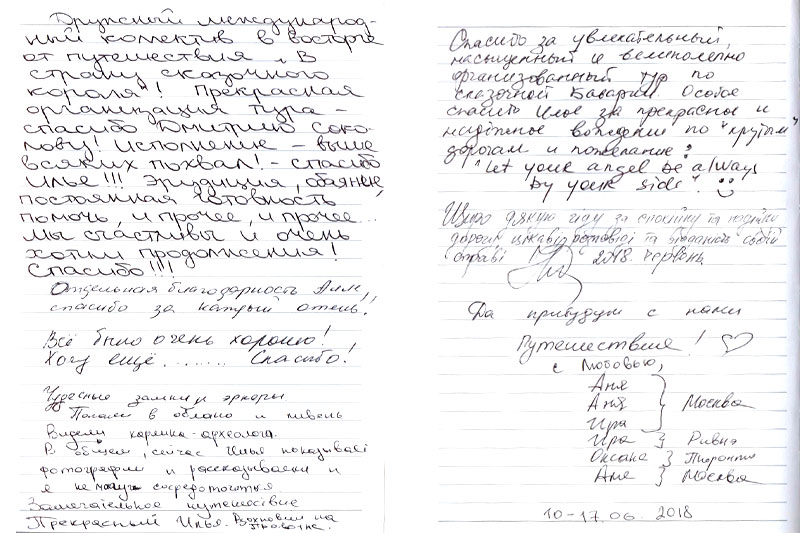 Дружный международ-
ный коллектив в восторге
от путешествия „В
страну сказочного
короля"! Прекрасная
организация тура –
спасибо Дмитрию Соко-
лову! Исполнение – выше
всяких похвал! – спасибо
Илье!!! Эрудиция, обаяние,
постоянная готовность
помочь, и прочее, и прочее...
Мы счастливы и очень
хотим продолжения!
Спасибо!!!
Отдельная благодарность Алле,
спасибо за каждый отель.
Всё было очень хорошо!
Хочу ещё........ Спасибо!
Чудесные замки и эркеры
Попали в облако и ливень
Видели
В общем, сейчас Илья показывает
фотографии и рассказывает и
я не могу сосредоточиться
Замечательное путешествие
Прекрасный Илья.
Спасибо за увлекательный,
насыщенный и великолепно
организованный тур по
сказочной Баварии. Особое
спасибо Илье за прекрасное и
надёжное вождение по "крутым"
дорогам и пожелание:
"Let your angel be always
by your side". :)
Щиро дякую гіду за спокійну та
дорогу, цікаві розповіді та відданість своїй
справі 2018. червень
Да прибудут с нами
Путешествия! ♡
с любовью,
Аня
Аня } Москва
Ира
Ира } Ривне
Оксана } Торонто
Аня } Москва
10-17.06.2018